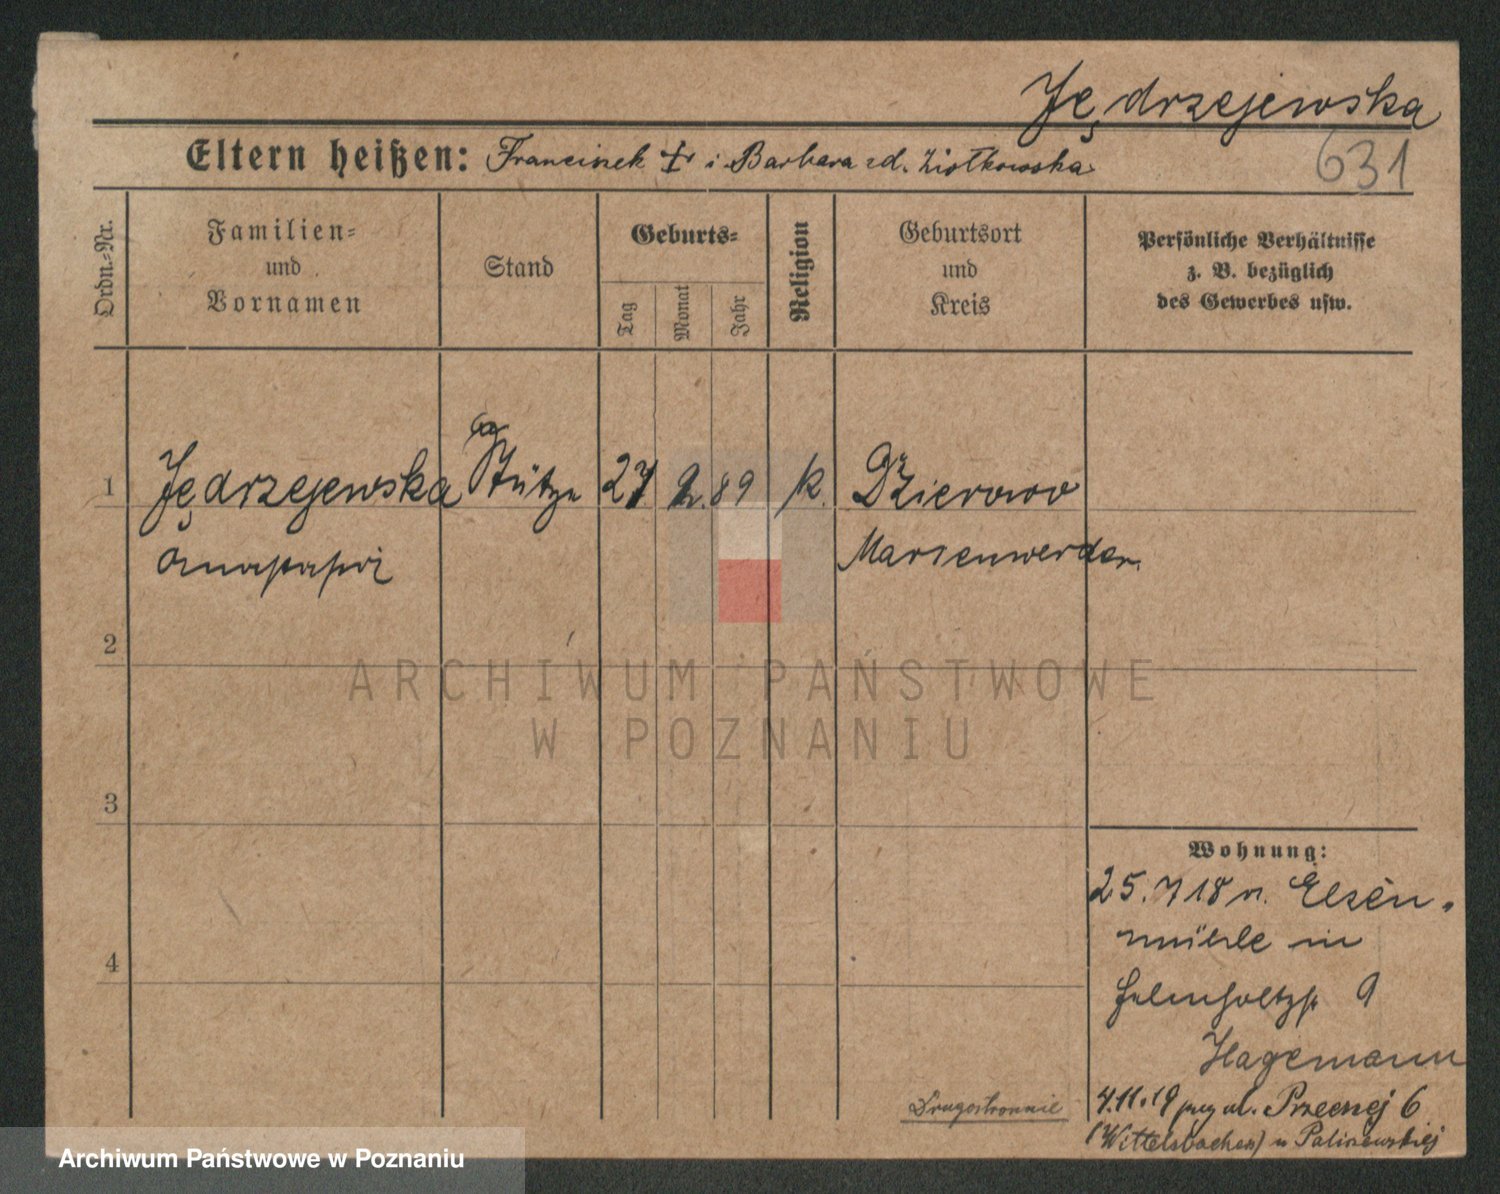 Jędrzejewska
Eltern heißen: Franciszek + i Barbara zd. Ziołkowska
631
Ordn.-Nr.
Familien-
und
Vornamen
Stand
Geburts-
Tag
Monat
Jahr
Religion
Geburtsort
und
Kreis
Persönliche Verhältnisse
z. B. bezüglich
des Gewerbes usw.
1
Jędrzejewska Stütze 27 2. 89 k. Dzierowo
Marienwerder
2
3
4
Wohnung:
25. 7 18 n. Elsen-
mühle in
9
Hagemann
Drugostronnie
4.11.19 przy ul. Przecznej 6
(Wittelsbacher) u Paliszewskiej
ARCHIWUM PAŃSTWOWE
W POZNANIU
Archiwum Państwowe w Poznaniu